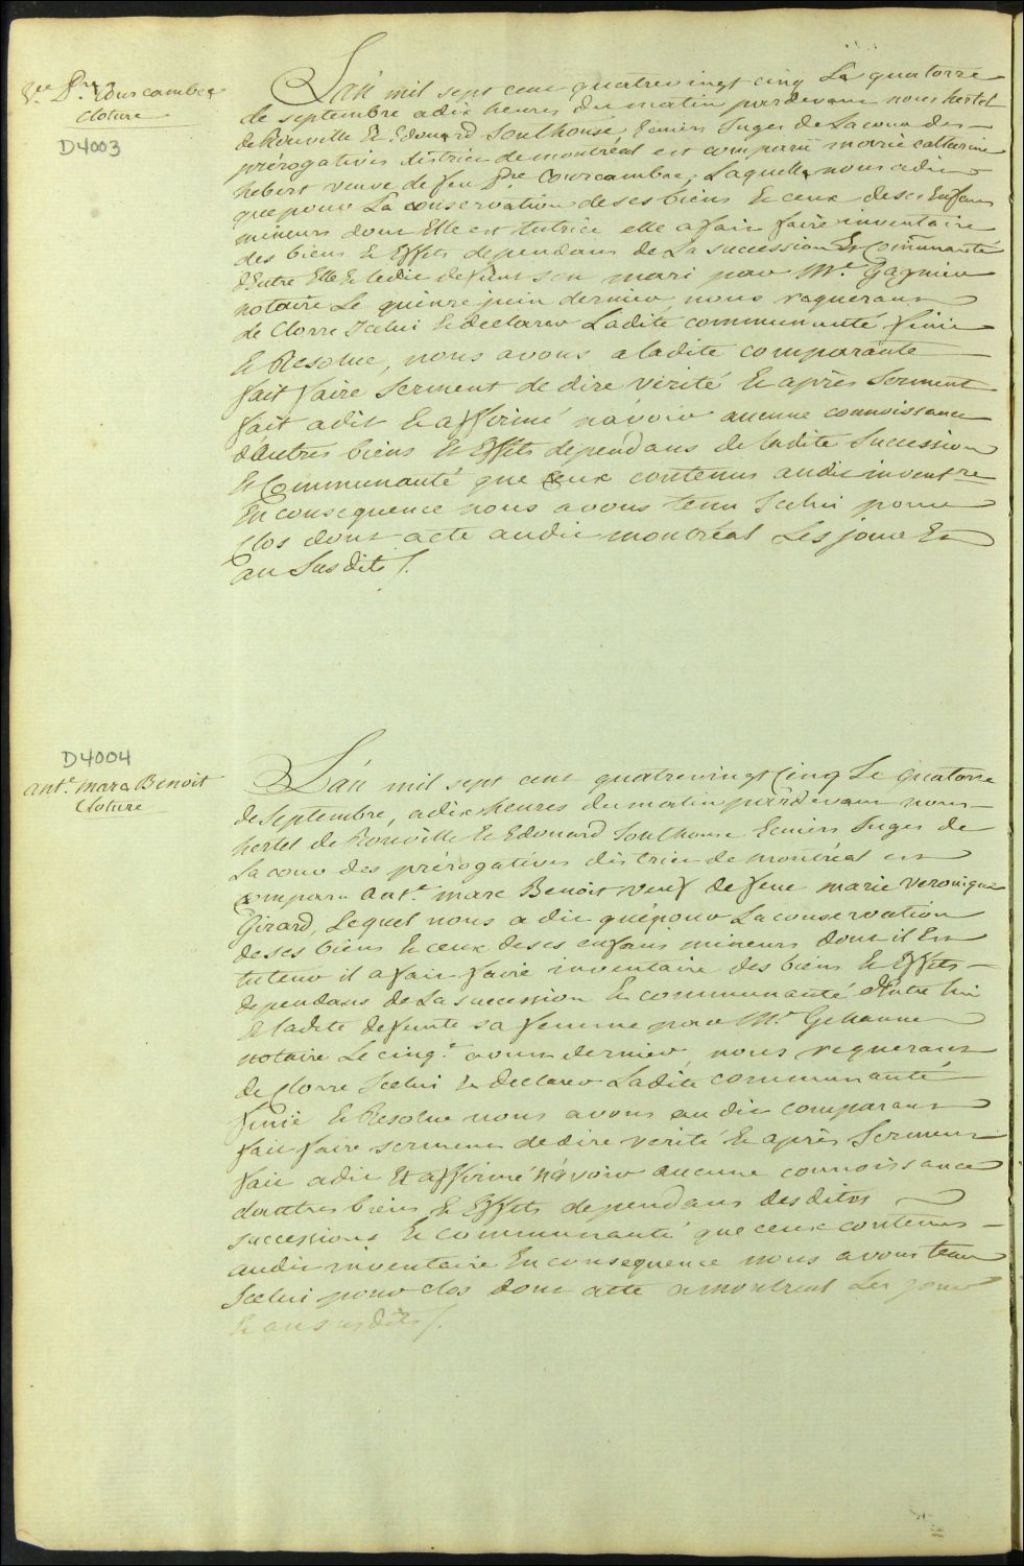 Vve. Pre. Courcambec
Cloture
D4003
L'an mil sept cent quatrevingt cinq Le quatorze
de septembre a dix heures du matin pardevant nous hertel
de Rouville Et Edouard Southouse, Ecuiers Juges de La cour des
prérogatives district de montréal est comparu marie catherine
hebert veuve de feu Pre. Courcambec, Laquelle nous a dit
que pour La conservation de ses biens & ceux de ses Enfans
mineurs dont Elle est tutrice elle a fait faire inventaire
des biens & Effets dependans de La succession Et Communauté
d'Entre Elle & ledit defunt son mari par Mr. Gagnier
notaire Le quinze juin dernier nous requerant
de Clorre Icelui & declarer Ladite communauté finie
& Resolue, nous avons a ladite comparante
fait faire Serment de dire verité & après Serment
fait a dit & affirmé n'avoir aucune connoissance
d'autres biens & Effets dependans de ladite Succession
& Communauté que Ceux contenus audit inventre
En consequence nous avons tenu Icelui pour
Clos dont acte audit montréal Les jour Et
an Susdits /.
D4004
Ante. marc Benoit
Cloture
L'an mil sept cent quatrevingt Cinq Le Quatorze
de Septembre, a dix heures du matin pardevant nous
hertel de Rouville & Edouard Southouse Ecuiers Juges de
La cour des prérogatives district de montréal est
comparu Ante. marc Benoit veuf de feue marie veronique
Girard, Lequel nous a dit que pour La conservation
de ses biens & ceux de ses enfans mineurs dont il Est
tuteur il a fait faire inventaire des biens & Effets
dependans de La succession & communauté d'Entre lui
& ladite defunte sa femme par Mr. Gehanne
notaire Le cinq. aoust dernier nous requerant
de Clorre Icelui & declarer Ladite communauté
finie & Resolue nous avons au dit comparant
fait faire serment de dire verité & après Serment
fait a dit Et affirmé n'avoir aucune connoissance
dautres biens & Effets dependans desdites
successions & communauté que ceux contenus
audit inventaire En consequence nous avons tenu
Icelui pour clos dont acte a montreal Les jour
& an susdits /.